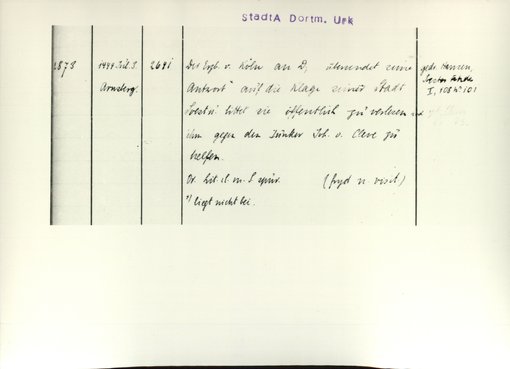 StadtA Dortm. Urk
1873
1444 Juli 3.
Arnsberg.
2641
Der Erzb. v. Köln an D, übersendet seine
Antwort auf die Klage seiner Stadt
Soest u. bittet sie öffentlich zu verlesen und
ihm gegen den Junker Joh. v. Cleve zu
helfen.
Or. lit. cl. m. S. spur. (fryd n. visit)
*) liegt nicht bei.
gedr. Hansen,
Soester Fehde
I, 108 No 101